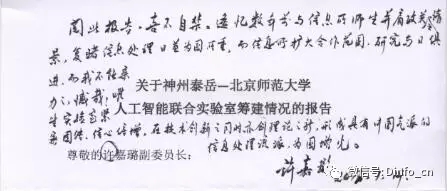 阅此报告，喜不自禁。追忆数年前与信息所师生并肩攻关
景，复睹信息处理日益为国所重，而信息所扩大合作范围，研究与日俱
进，而我不能亲
力之，憾哉！
关于神州泰岳—北京师范大学
人工智能联合实验室筹建情况的报告
异国传，信心倍增。在技术创新之同时亦创理论之新，形成具有中国气派的
信息处理流派，为国增光。
尊敬的许嘉璐副委员长：
许嘉璐
微信号：Dinfo_cn